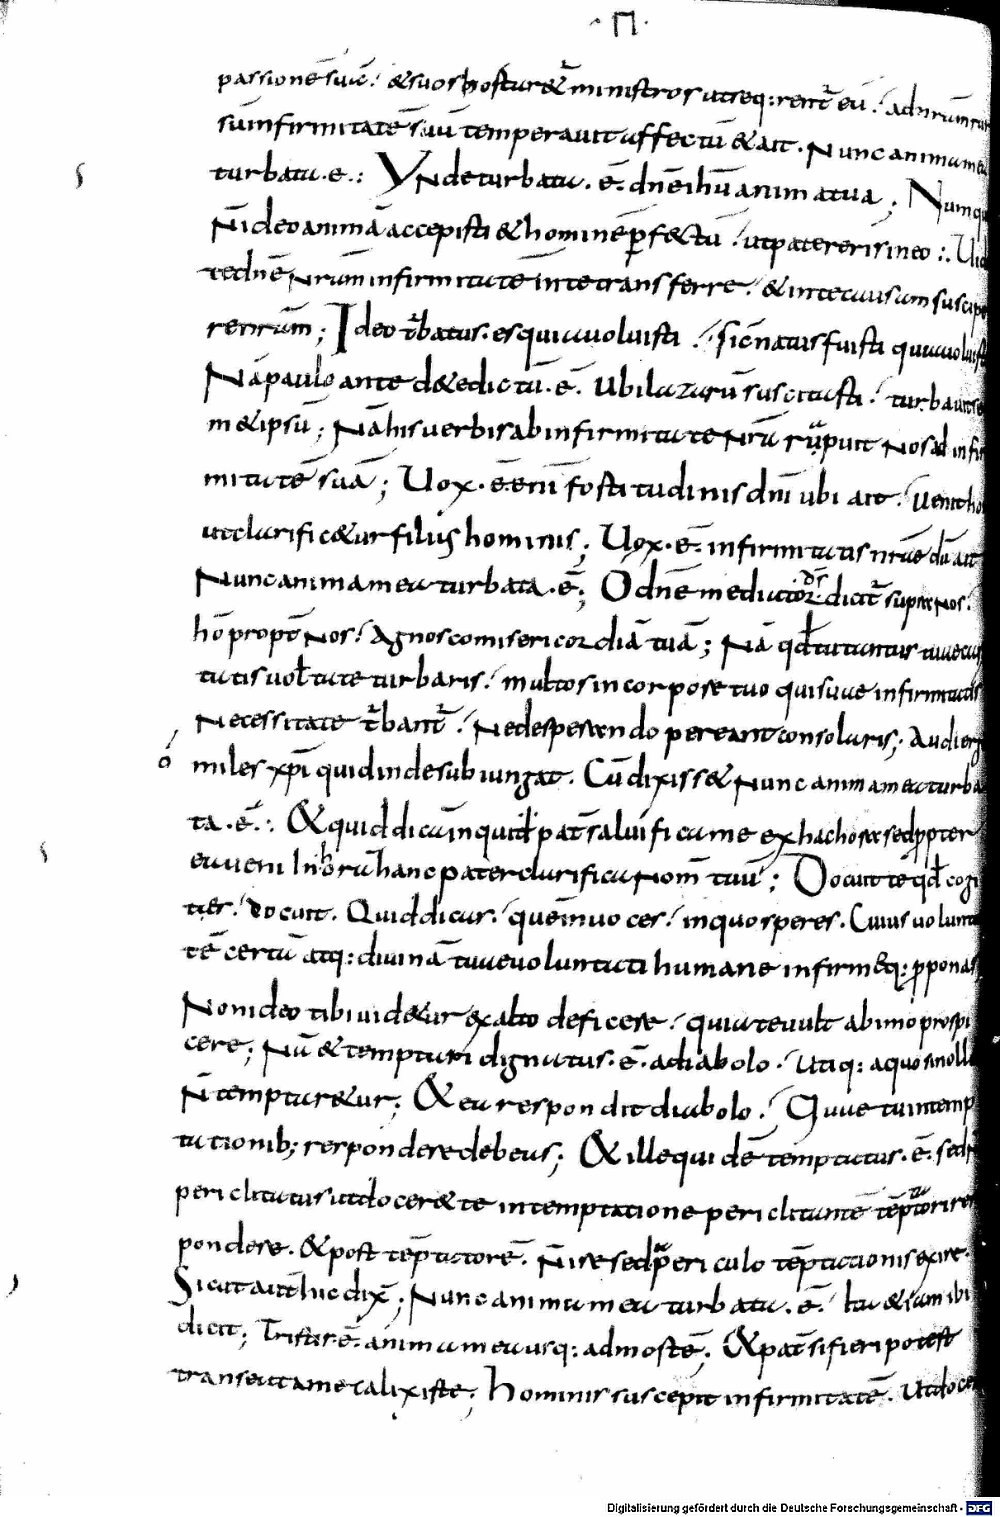 ·Π·
passionē suā. &suos hortar& ministros ut seq: rent̄ eū. ad nr̄am
suinfirmitatē suū temperauit affectū & ait. Nunc anima mea
turbata. ē.: Vnde turbata. ē. dn̄e ihū anima tua; Numq
N̄ ideo animā accepisti & hominē ꝑf&tū utpatereris in eo:. Uid
te dn̄e nr̄am infirmitatē in te transferre. & inte causam suscipe
re nr̄am; Ideo t̄batus. es quia uoluisti. sic natus fuisti quia uoluisti
Nā paulo ante d& edictū. ē. ubi lazarū suscitasti. turbauit se
m&ipsū; Nā his uerbis ab infirmitate nr̄a rapuit nos ad infir
mitatē suā; Uox. ē. enī fortitudinis dn̄i ubi ait. Uenit ho
ut clarific&ur filius hominis; Uox. ē. infirmitatis nr̄ae dū ait
Nunc anima mea turbata. ē; O dn̄e mediator ds̄ dicit̄ supra nos.
hō propt̄ nos. Agnosco misericordiā tuā; Nā qd̄ tu tantus tuae cari
tatis uolt̄ate turbaris. multos in corpore tuo qui suae infirmitatis
Necessitate t̄bant̄. Ne desperando pereant consolaris; Audierg
ó miles xp̄i quid inde subiungat. Cū dixiss& Nunc anima mea turba
ta. ē.:. & quid dicā inquid pat̄ saluifica me ex hac hora sed ꝓpter
ea ueni In hr̄a hanc pater clarifica nom̄ tuū; Docuit te qd̄ cogi
tes. Docuit. Quid dicas. quē inuoces. in quo speres. Cuius uolunta
tē certā atq: diuinā tuae uoluntati humane infirmęq: ꝓponas
Non ideo tibi uide&ur ex alto deficere. quia te uult ab imo profi
cere; Nā & temptari dignatus. ē. a diabolo. Utiq: a quo si noll&
N̄ temptar&ur; & ea respondit diabolo. Quae tu in temp
tationib; respondere debeas; & ille quidē temptatus. ē. sed n̄
periclitatus ut docer& te in temptatione periclitantē tēptatori res
pondere. & post tēptatorē. N̄ ire sed a periculo tēptationis exire.
Sicut autē hic dix̄; Nunc anima mea turbata. ē. Ita & iam ibi
dicit; Tristis ē. anima mea usq: ad mortē; & pat̄ si fieri potest
transeat a me calix iste; hominis suscepit infirmitatē. Ut doce
Digitalisierung gefördert durch die Deutsche Forschungsgemeinschaft - DFG